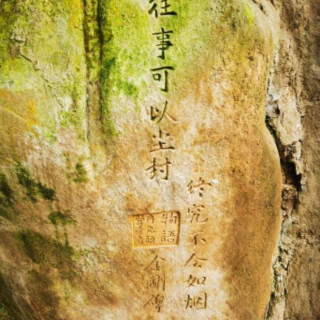 往事可以尘封
终究不会如烟
物語
金刚傳